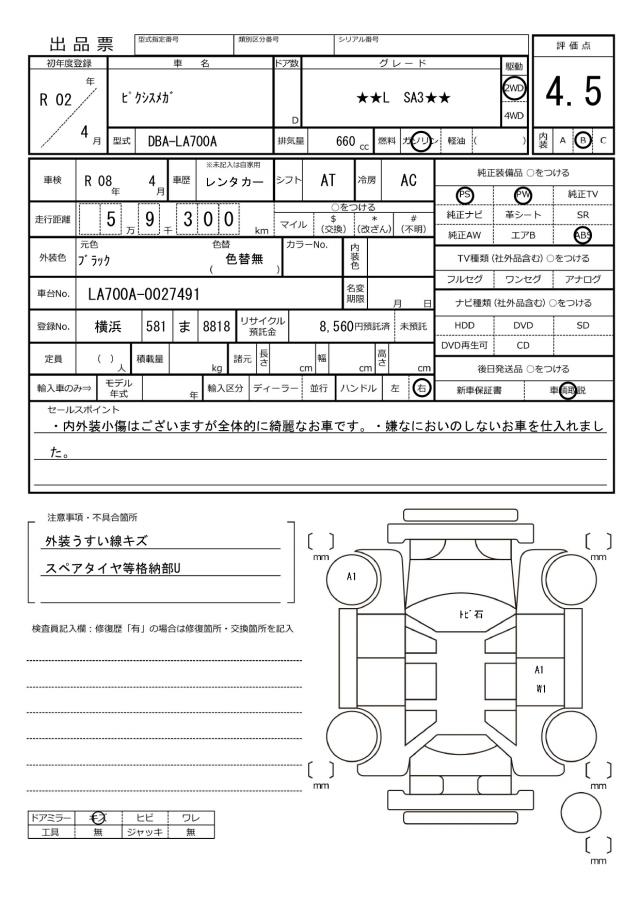 出品票
型式指定番号 類別区分番号 シリアル番号
評価点
4.5
初年度登録 車名 ドア数 グレード 駆動
R 02 年 4 月
ﾋﾟｸｼｽﾒｶﾞ D ★★L SA3★★ 2WD
4WD
型式 DBA-LA700A 排気量 660 cc 燃料 ガソリン 軽油 ( )
内装 A B C
車検 R 08 年 4 月 車歴 ※未記入は自家用 レンタカー シフト AT 冷房 AC
走行距離 5 万 9 千 3 0 0 km
○をつける
マイル $(交換) *(改ざん) #(不明)
外装色 元色 ﾌﾞﾗｯｸ 色替 ( 色替無 ) カラーNo. 内装色
車台No. LA700A-0027491 名変期限 月 日
登録No. 横浜 581 ま 8818 リサイクル預託金 8,560円預託済 未預託
定員 ( ) 人 積載量 kg 諸元 長さ cm 幅 cm 高さ cm
輸入車のみ⇒ モデル年式 年 輸入区分 ディーラー 並行 ハンドル 左 右
純正装備品 ○をつける
PS PW 純正TV
純正ナビ 革シート SR
純正AW エアB ABS
TV種類(社外品含む) ○をつける
フルセグ ワンセグ アナログ
ナビ種類(社外品含む) ○をつける
HDD DVD SD
DVD再生可 CD
後日発送品 ○をつける
新車保証書 車輌取説
セールスポイント
・内外装小傷はございますが全体的に綺麗なお車です。・嫌なにおいのしないお車を仕入れまし
た。
注意事項・不具合箇所
外装うすい線キズ
スペアタイヤ等格納部U
検査員記入欄：修復歴「有」の場合は修復箇所・交換箇所を記入
mm mm
A1
ﾄﾋﾞ石
A1
W1
mm mm
mm
ドアミラー キズ ヒビ ワレ
工具 無 ジャッキ 無